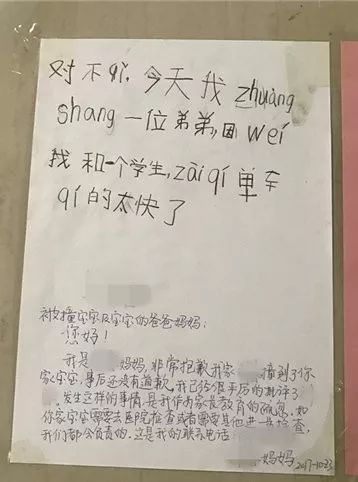 对不qǐ,今天我zhuàng
shang一位弟弟,因wéi
我和一个学生,zài qí单车
qí的太快了
被撞宝宝及宝宝的爸爸妈妈:
您好!
我是 妈妈,非常抱歉我家 撞到了你
家宝宝,事后还没有道歉。我已给很严厉的批评了
发生这样的事情是我作为家长教育的疏忽,如
你家宝宝需要去医院检查或者需要其他进一步检查,
我们都会负责的,这是我的联系电话
妈妈 2017-10-23